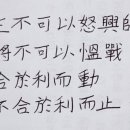 主不可以怒興師
將不可以慍戰
合於利而動
不合於利而止